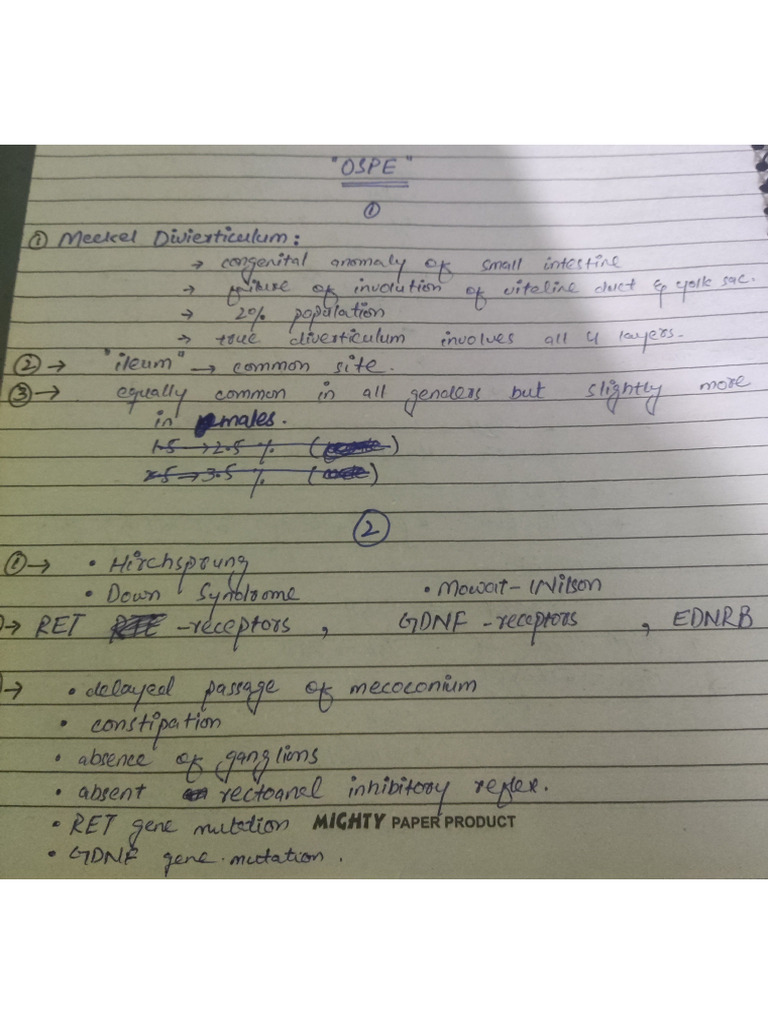 "OSPE"
①
① Meckel Divierticulum:
→ congenital anomaly of small intestine
→ failure of involution of viteline duct & yolk sac.
→ 2% population
→ true diverticulum involves all 4 layers.
② → "ileum" → common site.
③ → equally common in all genders but slightly more
in males.
1.5 → 2.5 % ( )
2.5 → 3.5 % ( )
②
① → • Hirchsprung
• Down Syndrome • Mowat-Wilson
→ RET -receptors , GDNF -receptors , EDNRB
→ • delayed passage of mecoconium
• constipation
• absence of ganglions
• absent rectoanel inhibitory reflex.
• RET gene mutation MIGHTY PAPER PRODUCT
• GDNF gene mutation.